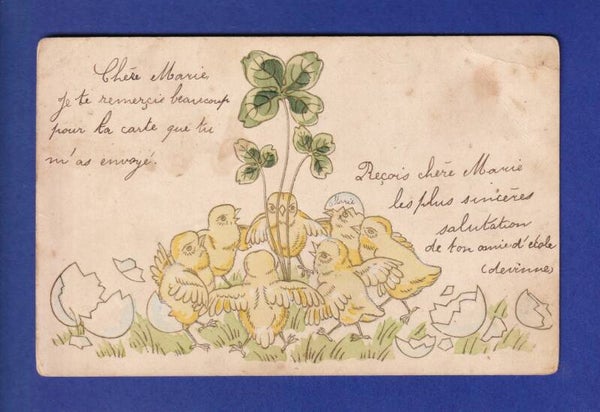 Chère Marie,
Je te remerçie beaucoup
pour la carte que tu
m'as envoyé.
Reçois chère Marie
les plus sincères
salutation
de ton amie d'école
(devinne)
Marie